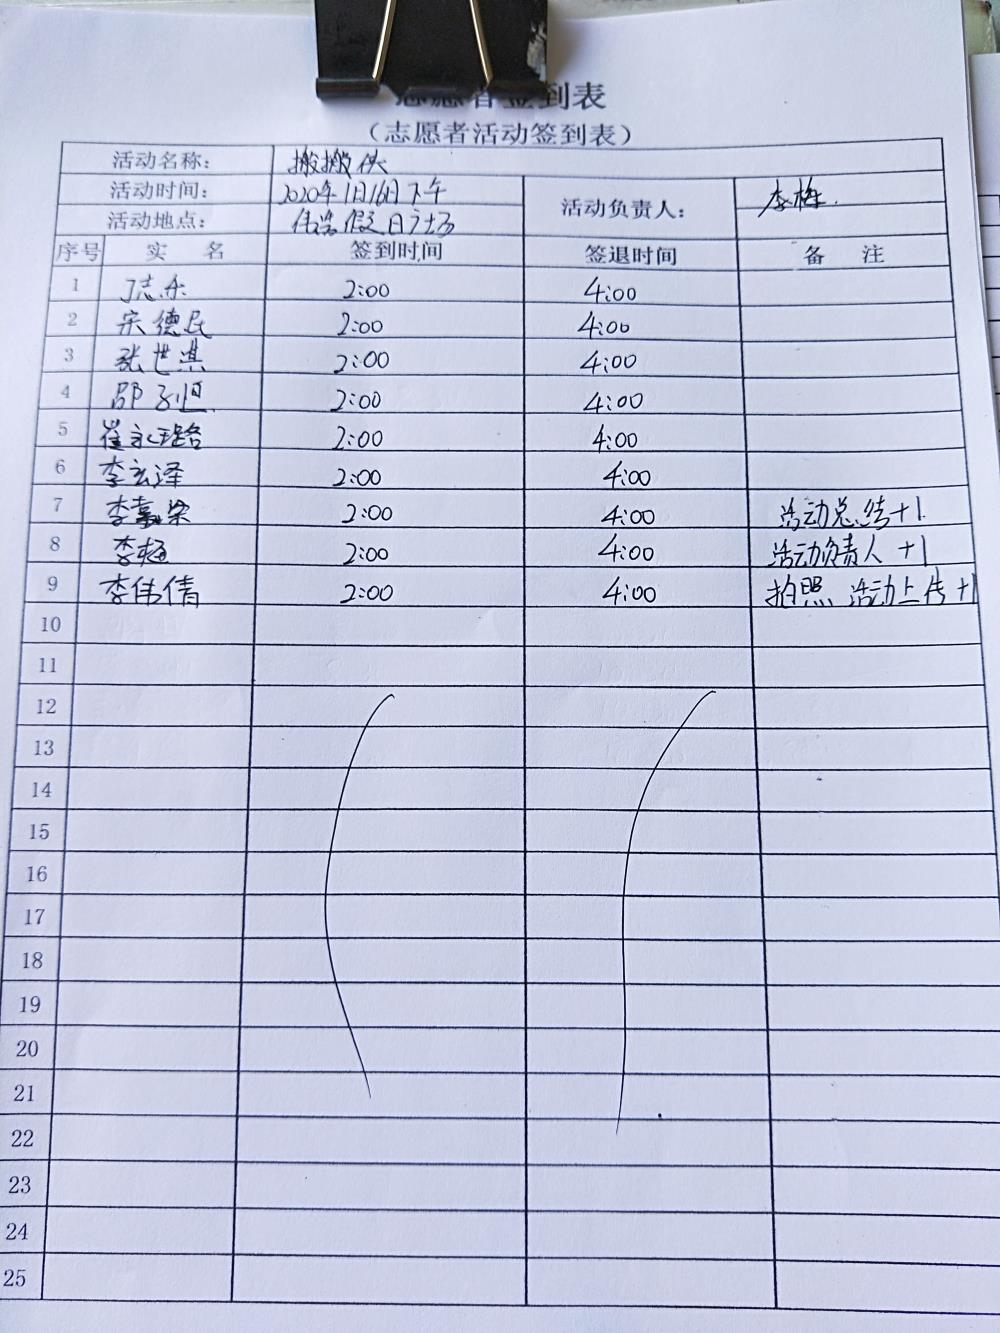 志愿者签到表
（志愿者活动签到表）
活动名称： 搬搬侠
活动时间： 2020年1月16日下午 活动负责人： 李梅
活动地点： 伟浩假日广场
序号 实 名 签到时间 签退时间 备 注
1 丁志乐 2:00 4:00
2 宋德民 2:00 4:00
3 张世淇 2:00 4:00
4 邵子恒 2:00 4:00
5 崔永璐 2:00 4:00
6 李玄泽 2:00 4:00
7 李嘉荣 2:00 4:00 活动总结+1
8 李梅 2:00 4:00 活动负责人 +1
9 李伟倩 2:00 4:00 拍照 活动上传+1
10
11
12
13
14
15
16
17
18
19
20
21
22
23
24
25